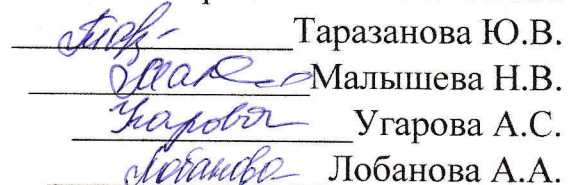 Таразанова Ю.В.
Малышева Н.В.
Угарова Угарова А.С.
Лобанова Лобанова А.А.